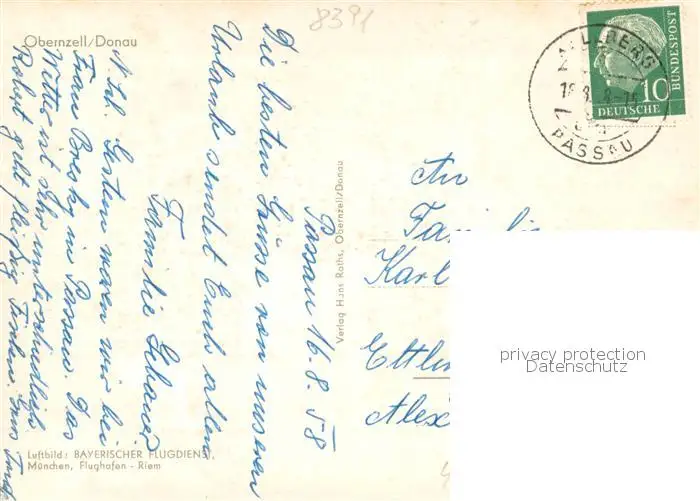 8391
Obernzell/Donau
Passau 16.8.58
Die besten Grüsse von unserem
Urlaube sendet Euch allen
Familie Gebauer
N. Sch. Gestern waren wir bei
Frau Bresk, in Passau. Das
Wetter ist sehr unterschiedlich
Robert geht fleißig Fischen.
Luftbild: BAYERISCHER FLUGDIENST,
München, Flughafen - Riem
Verlag Hans Roths, Obernzell/Donau
PASSAU
10
DEUTSCHE
BUNDESPOST
An
Karl
Ettlin
Alex
privacy protection
Datenschutz